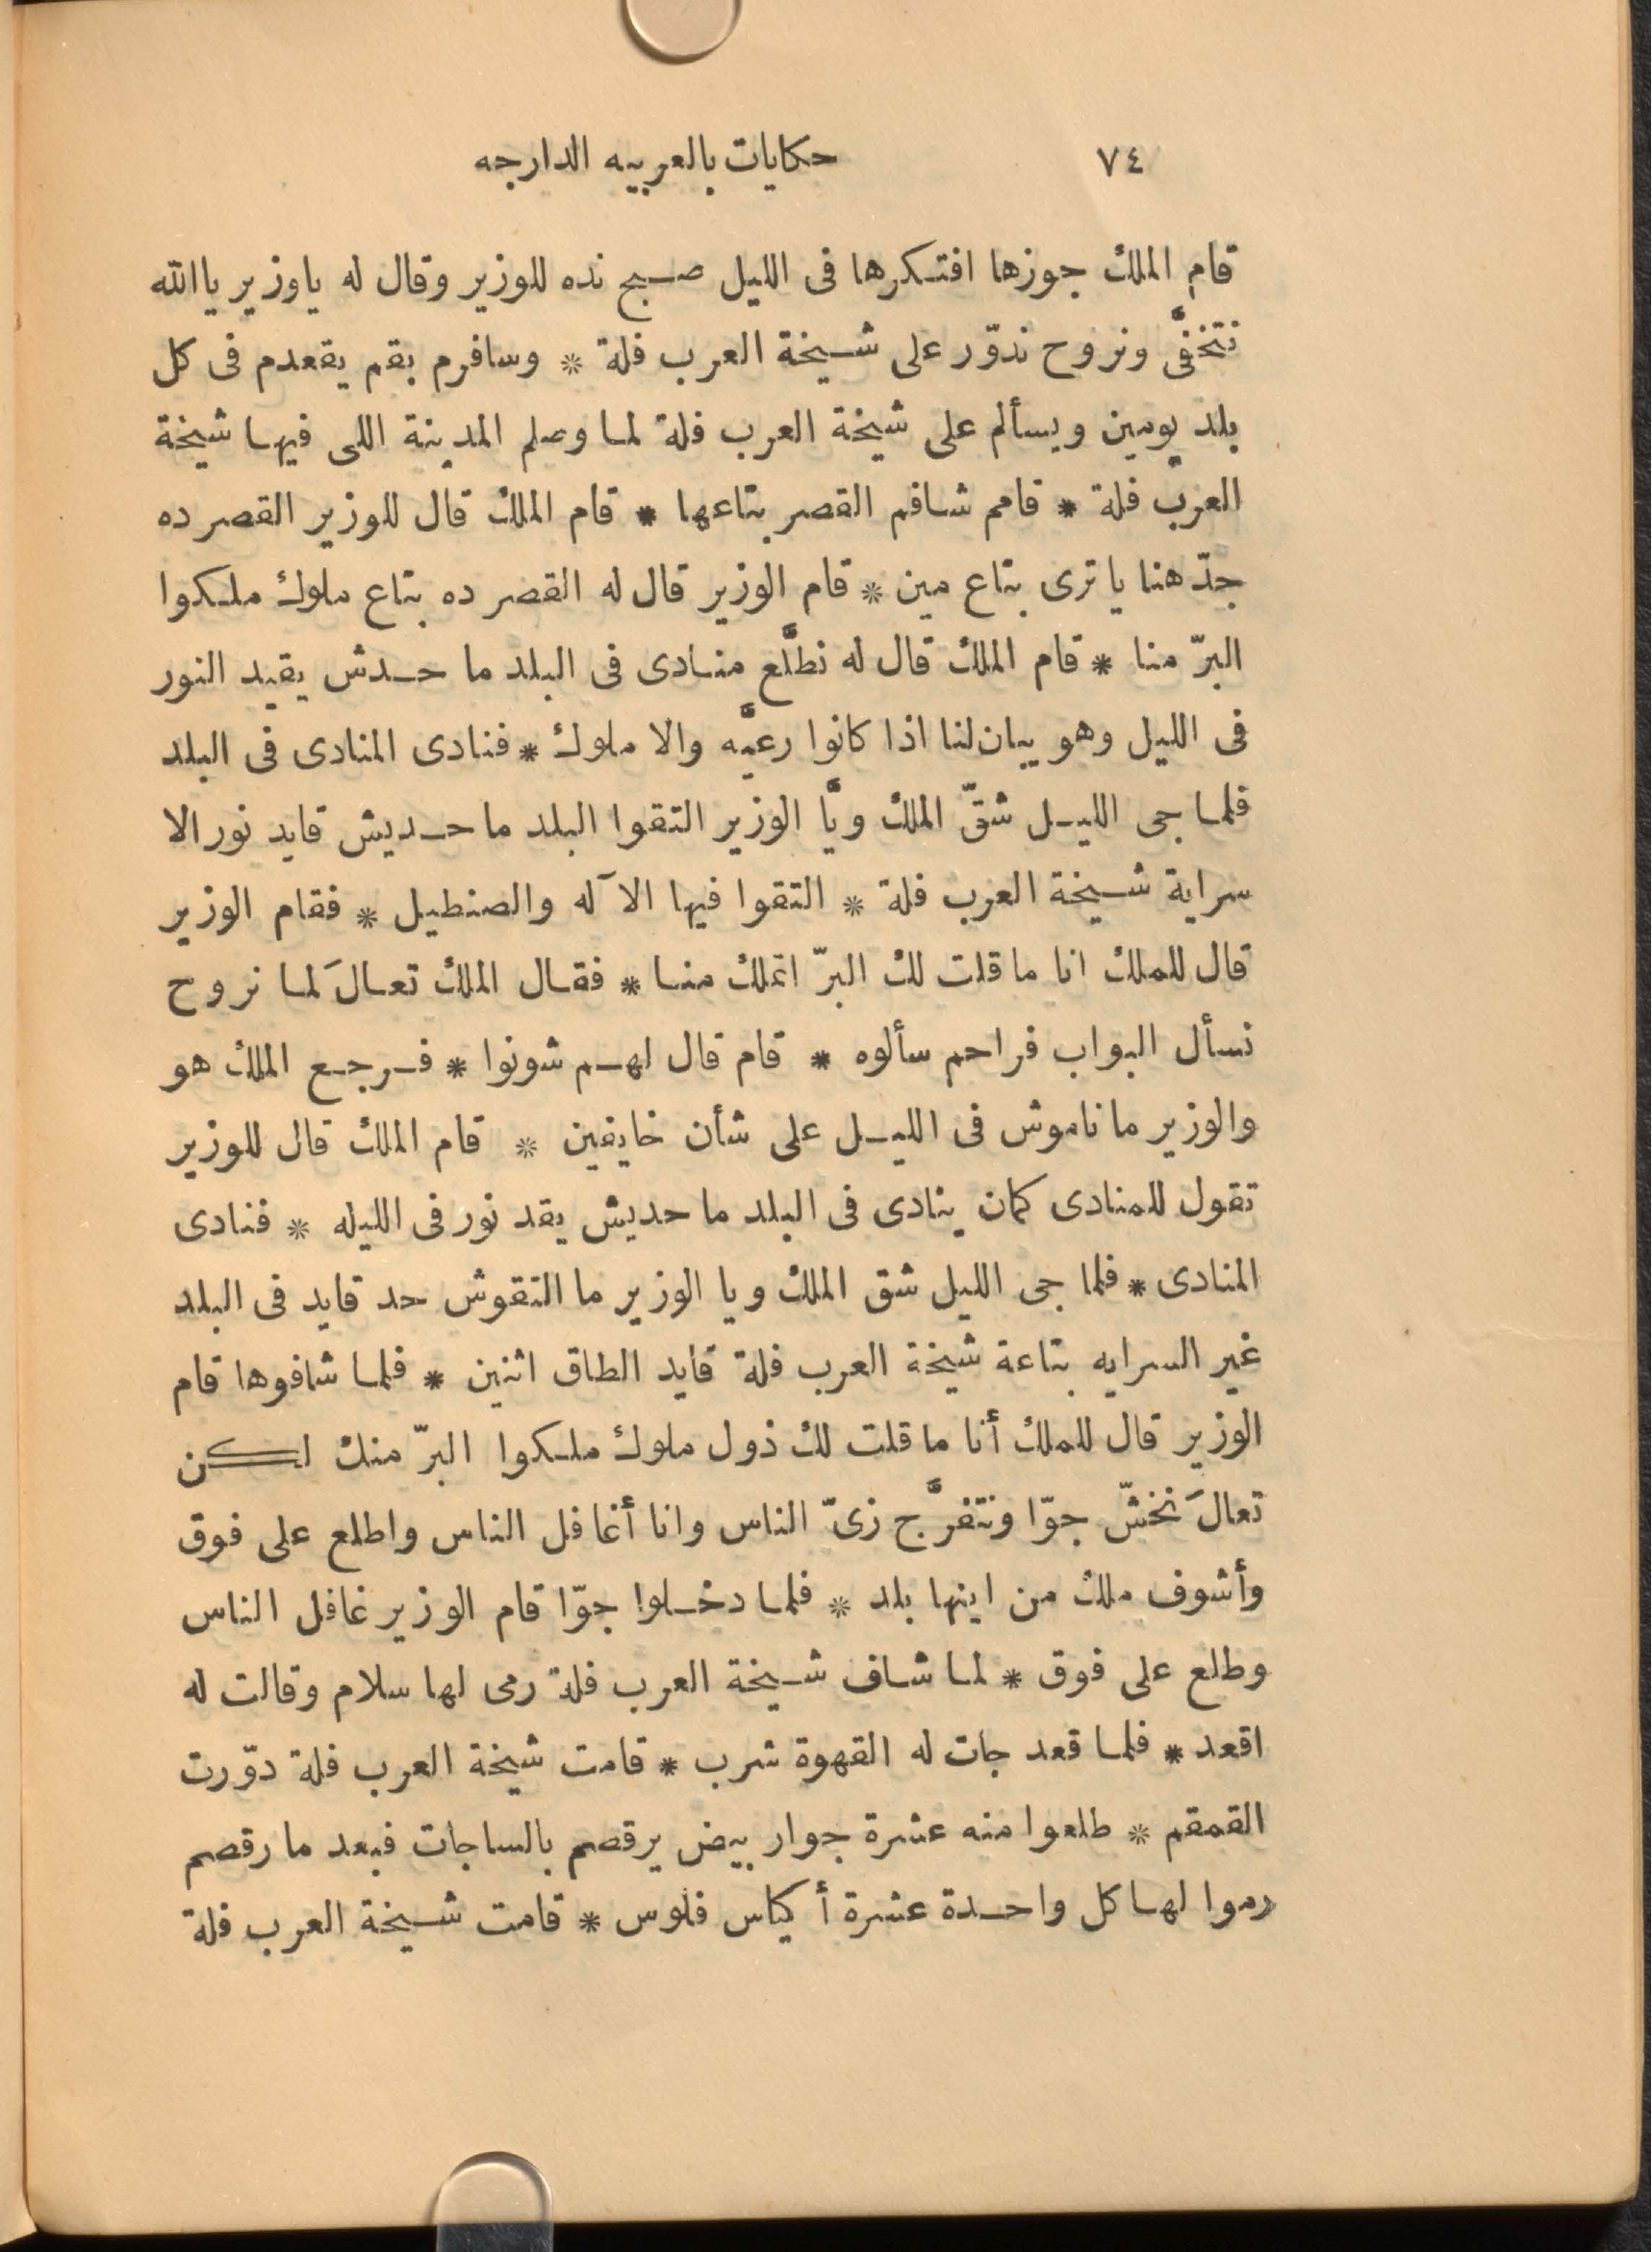 ٧٤ حكايات بالعربيه الدارجه
قام الملك جوزها افتكرها فى الليل صبح نده للوزير وقال له ياوزير ياالله
نتخفَّى ونروح ندوّر على شيخة العرب فلة * وسافرم بقم يقعدم فى كل
بلد يومين ويسألم على شيخة العرب فلة لما وصلم المدينة اللى فيها شيخة
العرب فلة * قامم شافم القصر بتاعها * قام الملك قال للوزير القصر ده
جدّ هنا يا ترى بتاع مين * قام الوزير قال له القصر ده بتاع ملوك ملكوا
البرّ منا * قام الملك قال له نطلَّع منادى فى البلد ما حدش يقيد النور
فى الليل وهو يبان لنا اذا كانوا رعيَّه والا ملوك * فنادى المنادى فى البلد
فلما جى الليل شقّ الملك ويَّا الوزير التقوا البلد ما حديش قايد نور الا
سراية شيخة العرب فلة * التقوا فيها الآله والصنطيل * فقام الوزير
قال للملك انا ما قلت لك البرّ اتملك منا * فقال الملك تعالَ لما نروح
نسأل البواب فراحم سألوه * قام قال لهم شونوا * فرجع الملك هو
والوزير ما ناموش فى الليل على شأن خايفين * قام الملك قال للوزير
تقول للمنادى كمان ينادى فى البلد ما حديش يقد نور فى الليله * فنادى
المنادى * فلما جى الليل شق الملك ويا الوزير ما التقوش حد قايد فى البلد
غير السرايه بتاعة شيخة العرب فلة قايد الطاق اثنين * فلما شافوها قام
الوزير قال للملك أنا ما قلت لك ذول ملوك ملكوا البرّ منك لكن
تعالَ نخشّ جوّا ونتفرَّج زىّ الناس وانا أغافل الناس واطلع على فوق
وأشوف ملك من اينها بلد * فلما دخلوا جوّا قام الوزير غافل الناس
وطلع على فوق * لما شاف شيخة العرب فلة رمى لها سلام وقالت له
اقعد * فلما قعد جات له القهوة شرب * قامت شيخة العرب فلة دوّرت
القمقم * طلعوا منه عشرة جوار بيض يرقصم بالساجات فبعد ما رقصم
رموا لها كل واحدة عشرة أكياس فلوس * قامت شيخة العرب فلة